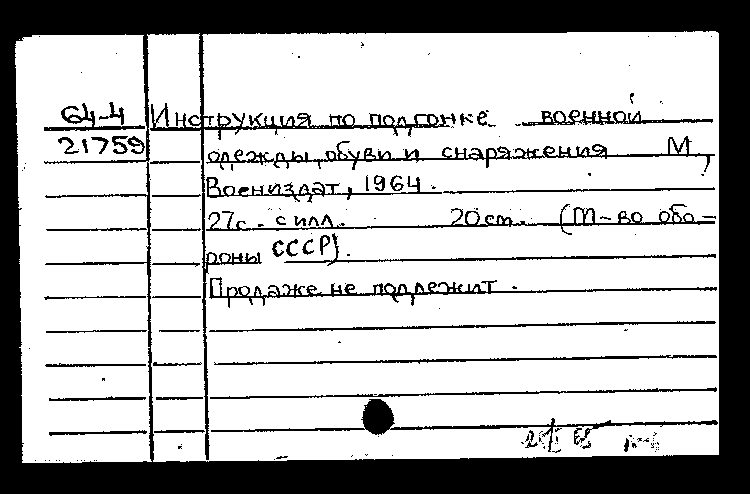 64-4 Инструкция по подгонке военной
21759 одежды, обуви и снаряжения М,
Воениздат, 1964.
27с. с илл. 20 см. (М-во обо-
роны СССР).
Продаже не подлежит.